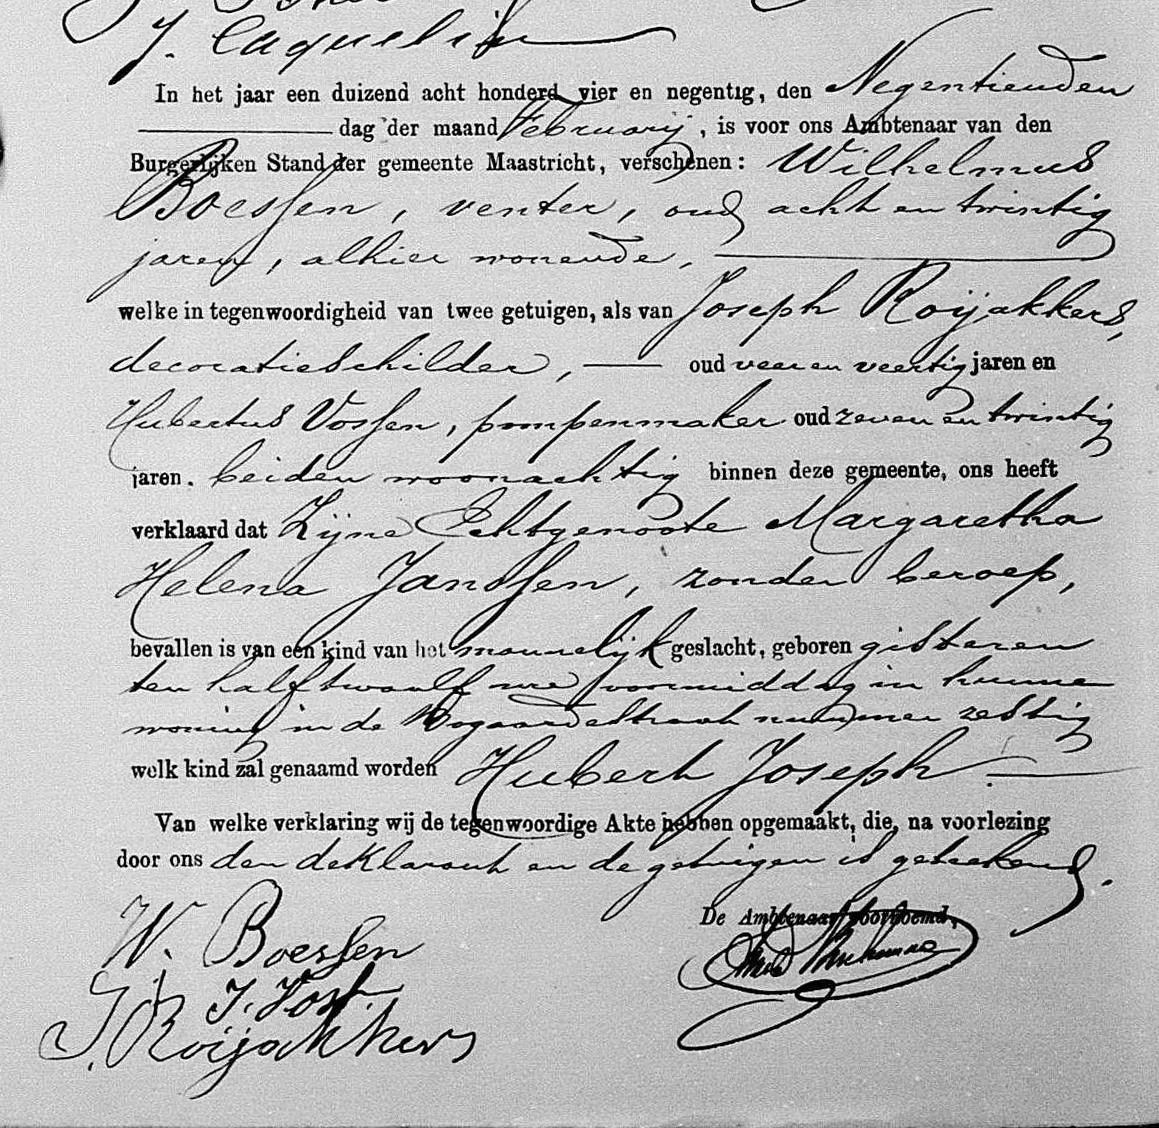 J. Caquelin
In het jaar een duizend acht honderd vier en negentig, den Negentienden
dag der maand February, is voor ons Ambtenaar van den
Burgerlijken Stand der gemeente Maastricht, verschenen: Wilhelmus
Boessen, venter, oud acht en twintig
jaren, alhier wonende,
welke in tegenwoordigheid van twee getuigen, als van Joseph Roijakkers,
decoratieschilder, oud veer en veertig jaren en
Hubertus Vossen, pompenmaker oud zeven en twintig
jaren. beiden woonachtig binnen deze gemeente, ons heeft
verklaard dat Zijne Echtgenoote Margaretha
Helena Janssen, zonder beroep,
bevallen is van een kind van het mannelijk geslacht, geboren gisteren
ten half twaalf ure voormiddag in hunne
woning in de Bogaardestraat nummer zestig
welk kind zal genaamd worden Hubert Joseph.
Van welke verklaring wij de tegenwoordige Akte hebben opgemaakt, die, na voorlezing
door ons den deklarant en de getuigen is geteekend.
De Ambtenaar voornoemd,
W. Boessen
J. Roijakkers